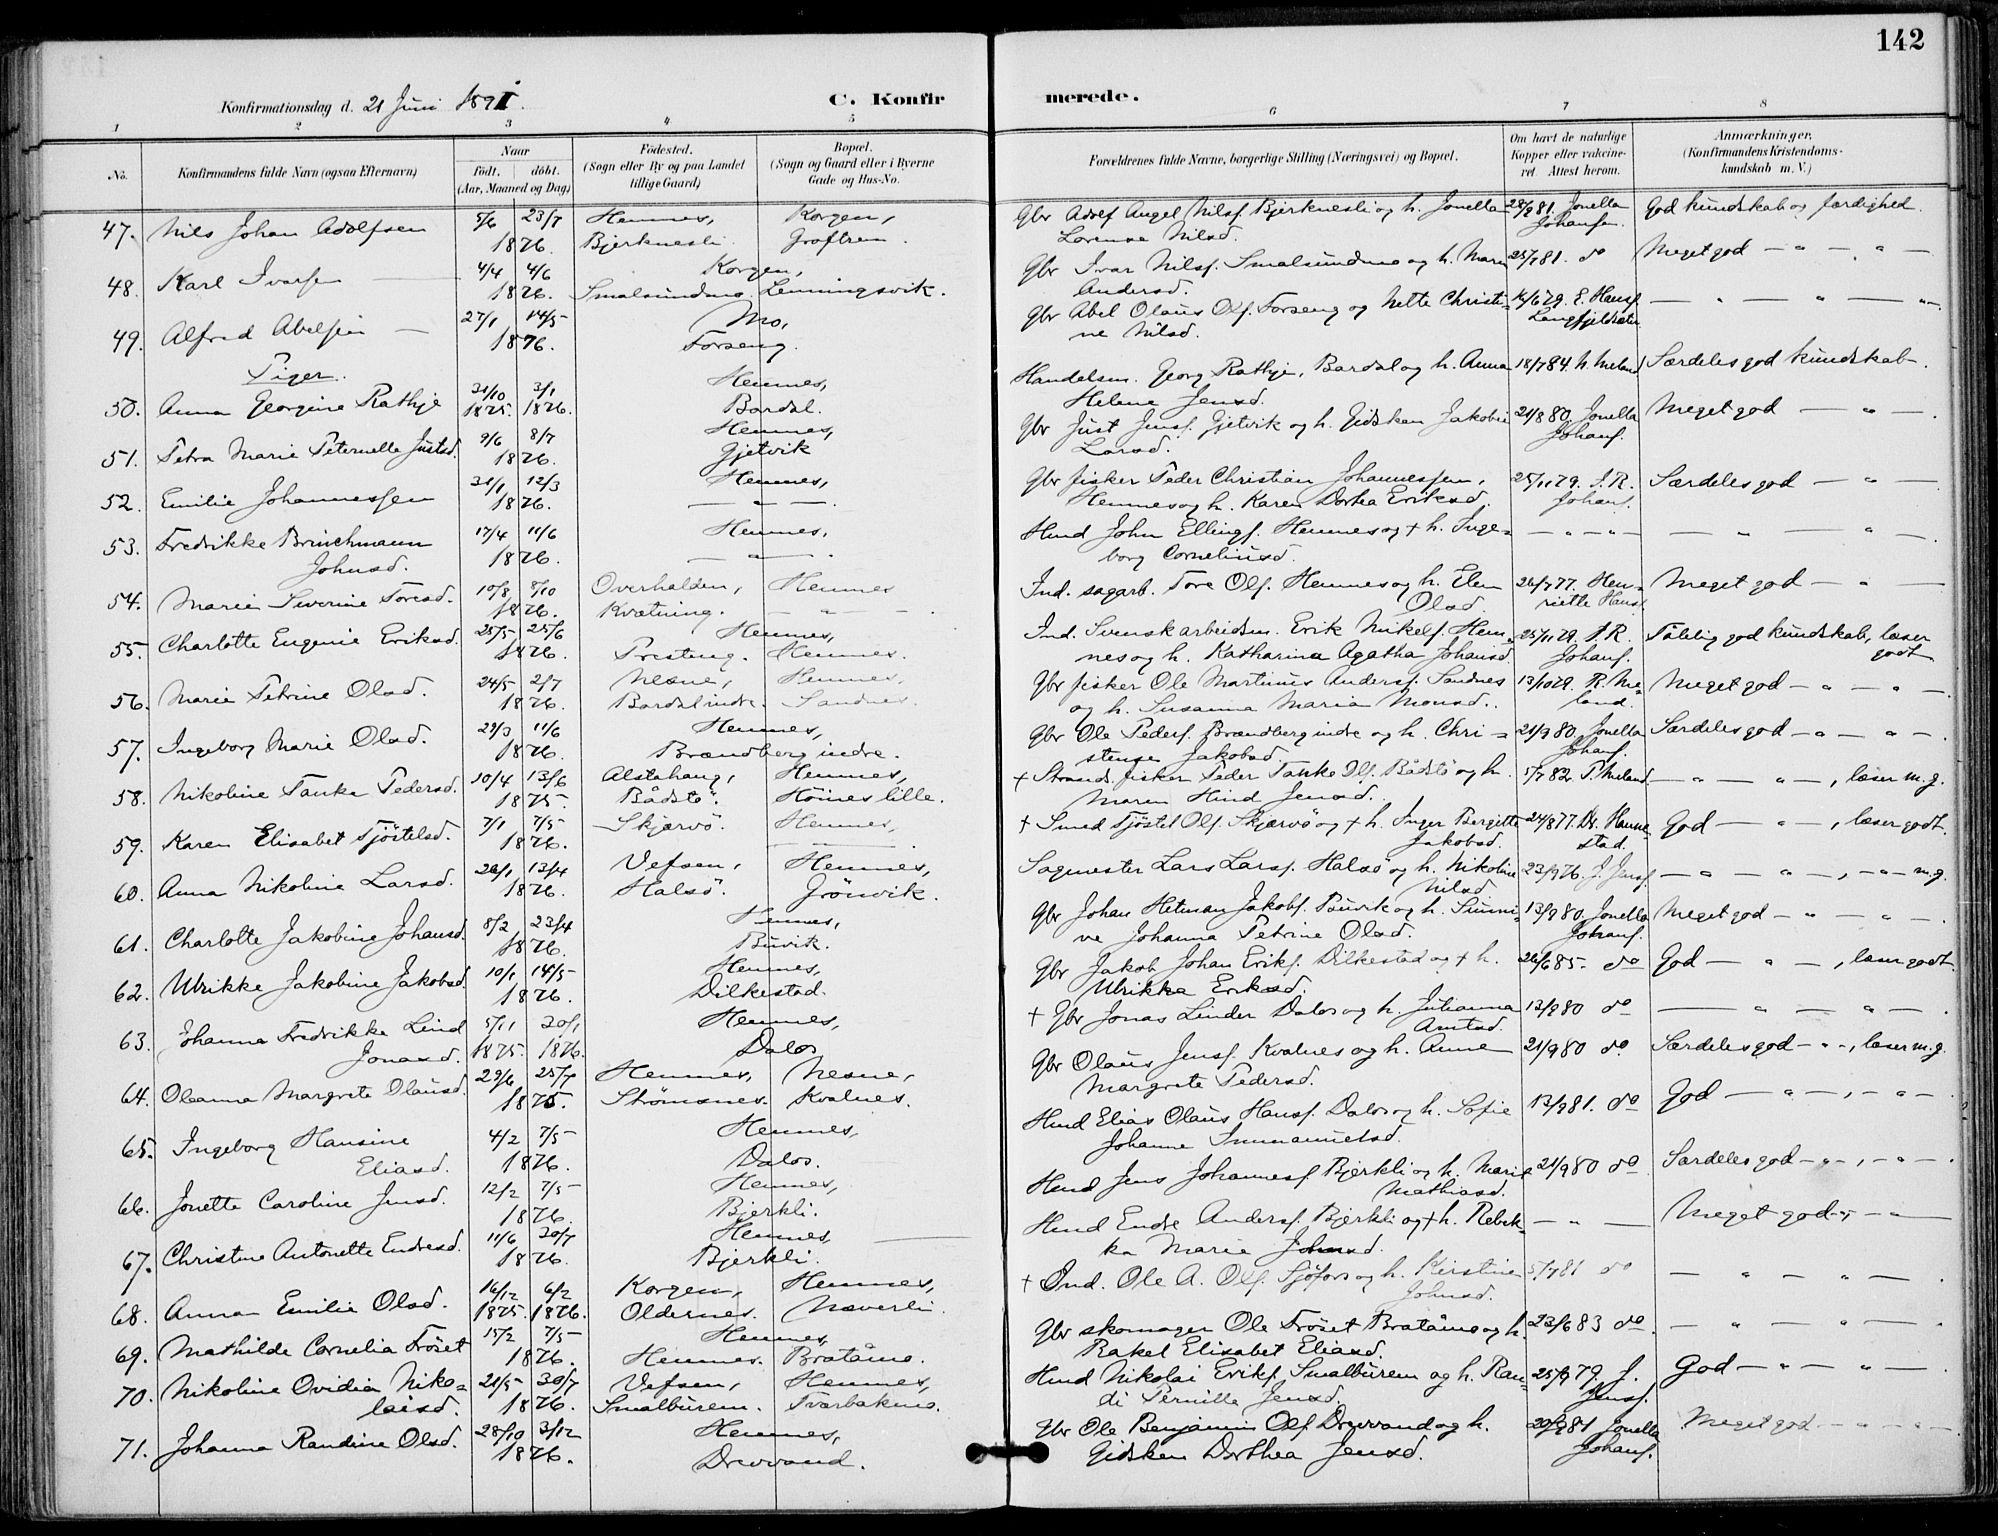 142
Konfirmationsdag d. 21 Juni 1891.
C. Konfirmerede.
1 2 3 4 5 6 7 8
No.
Konfirmandens fulde Navn (ogsaa Efternavn)
Naar
født. døbt.
(Aar, Maaned og Dag)
Fødested.
(Sogn eller By og paa Landet
tillige Gaard)
Bopæl.
(Sogn og Gaard eller i Byerne
Gade og Hus-No.
Forældrenes fulde Navne, borgerlige Stilling (Næringsvei) og Bopæl.
Om havt de naturlige
Kopper eller vakcine-
ret. Attest herom.
Anmærkninger,
(Konfirmandens Kristendoms-
kundskab m. V.)
47. Nils Johan Adolfsen 5/6 23/7 1876. Hemnes, Bjerknesli. Korgen, Groftrem. Gbr Adolf Angel Nilsf. Bjerknesli og h. Jonella Lorense Nilsd. 28/9 81. Jonella Johansen. God kundskab og færdighed.
48. Karl Ivarsen 4/4 4/6 1876. Korgen, Smalsundmo. Lenningsvik. Gbr Ivar Nilsf. Smalsundmo og h. Maren Andersd. 25/7 81. do Meget god — " — " —
49. Alfred Abelsen — 27/1 14/5 1876. Mo, Forseng. Gbr Abel Olaus Olf. Forseng og Nette Christine Nilsd. 16/6 79. E. Hansf. Langfjeldsæter — " — " — " —
Piger.
50. Anna Georgine Rathje 31/10 1875. 3/1 1876. Hemnes, Bardal. Handelsm. Georg Rathje, Bardal og h. Anna Helene Jensd. 18/7 84. N. Meland Særdeles god kundskab.
51. Petra Marie Peternelle Justsd. 9/6 8/7 1876. Hemnes, Gjetvik Gbr Just Jensf. Gjetvik og h. Gidsken Jakobie Larsd. 21/8 80. Jonella Johansf. Meget god — " —.
52. Emilie Johannessen 31/1 12/3 1876. Hemnes, — " —. Gbr fisker Peder Christian Johannessen, Hemnes og h. Karen Dorthea Eriksd. 25/11 79. J. R. Johansf. Særdeles god — " —
53. Fredrikke Brinchmann Johnsd. 17/4 11/6 1876. Hemnes, — " —. Hmd John Ellingf. Hemnes og + h. Ingeborg Corneliusd. — " — " — — " — " —
54. Marie Severine Toresd. 10/8 8/10 1876. Overhalden, Kvætning. Hemnes — " —. Ind. sagarb. Tore Olf. Hemnes og h. Elen Olsd. 26/7 77. Henriette Hansf. Meget god — " —
55. Charlotte Eugenie Eriksd. 25/5 25/6 1876. Hemnes, Presteng. Hemnes. Ind. Svensk arbeidsm. Erik Mikelf. Hemnes og h. Katharina Agatha Johansd. 25/11 79. J. R. Johansf. Tålelig god kundskab, læser godt
56. Marie Petrine Olsd. 24/5 2/7 1876. Nesne, Bardal indre. Hemnes, Sandnes. Gbr fisker Ole Martinus Andersf. Sandnes og h. Susanna Maria Monsd. 13/10 79. R. Meland. Meget god — " — " —.
57. Ingeborg Marie Olsd. 29/3 11/6 1876. Hemnes, Brændberg indre. Gbr Ole Pedersf. Brændberg indre og h. Christense Jakobsd. 21/9 80. Jonella Johansf. Særdeles god — " — " —.
58. Nikoline Tanka Pedersd. 10/4 13/6 1875. Alstahaug, Bådstö. Hemnes, Höines lille. + Strands. fisker Peder Tanke Olf. Bådstö og h. Maren Hind Jensd. 5/7 82 P. Meland — " — " —, læser m.g.
59. Karen Elisabet Tjöstelsd. 7/1 7/5 1876. Skjærvö. Hemnes, + Smed Tjöstel Olf. Skjærvö og + h. Inger Bergitte Jakobsd. 24/8 77. Dr. Hannestad. God — " —, læser godt.
60. Anna Nikoline Larsd. 26/1 13/4 1876. Vefsen, Halsö. Hemnes, Grönvik. Sagmester Lars Larsf. Halsö og h. Nikoline Nilsd. 23/9 76. J. Jensf. — " — " —, — " — m.g.
61. Charlotte Jakobine Johansd. 8/2 23/4 1876. Hemnes, Buvik. Gbr Johan Hetman Jakobf. Buvik og h. Sunnive Johanna Petrine Olsd. 13/9 80. Jonella Johansf. Meget god — " — " —.
62. Ulrikke Jakobine Jakobsd. 10/1 14/5 1876. Hemnes, Dilkestad. Gbr Jakob Johan Erikf. Dilkestad og + h. Ulrikka Eriksd. 26/6 85. do God — " —, læser godt.
63. Johanna Fredrikke Lind Jonasd. 5/11 1875. 30/1 1876. Hemnes, Dalos + Gbr Jonas Linder Dalos og h. Julianna Amtsd. 13/9 80 do — " — " —
64. Oleanna Margrete Olausd. 29/6 25/7 1875. Hemnes, Strömsnes. Nesne, Kvalnes. Gbr Olaus Jensf. Kvalnes og h. Anne Margrete Pedersd. 21/9 80 do Særdeles god — " —, læser m.g.
65. Ingeborg Hansine Eliasd. 4/2 7/5 1876. Hemnes, Dalos. Hmd Elias Olaus Hansf. Dalos og h. Sofie Johanne Immanuelsd. 13/9 81. do God — " —, — " —.
66. Jonette Caroline Jensd. 12/2 7/5 1876. Hemnes, Bjerkli. Hmd Jens Johannesf. Bjerkli og h. Marie Mathiasd. 21/9 80 do Særdeles god — " —, — " —.
67. Christine Antonette Endresd. 11/6 30/7 1876. Hemnes, Bjerkli. Hmd Endre Andersf. Bjerkli og + h. Rebekka Marie Johnsd. — " — Meget god — " —
68. Anna Emilie Olsd. 16/12 1875. 6/2 1876. Korgen, Oldernes. Hemnes, Næverli. + Ind. Ole A. Olf. Sjöfors og h. Kirstine Johnsd. 5/7 81 do — " — " —.
69. Mathilde Cornelia Fröset 15/2 7/5 1876. Hemnes, Hemnes. Bratåmo. Gbr skomager Ole Fröset Bratåmo og h. Rakel Elisabet Eliasd. 23/6 83 do. — " — " —
70. Nikoline Ovidia Nikolaisd. 21/5 30/7 1876. Vefsen, Smalburem. Hemnes, Tværbakmo. Hmd Nikolai Erikf. Smalburem og h. Randi Pernille Jensd. 25/9 79. J. Jensf. God — " — " —
71. Johanna Randine Olsd. 28/10 3/12 1876. Hemnes, Drevvand. Gbr Ole Benjamin Olf. Drevvand og h. Gidsken Dorthea Jensd. 20/9 81 Jonella Johansf. Meget god — " — " —